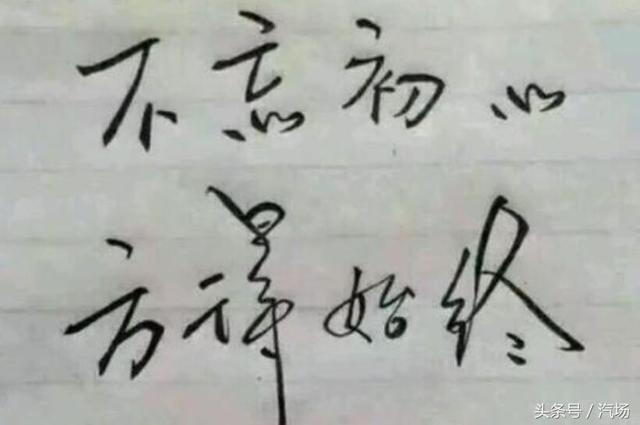 不忘初心
方得始终
头条号 / 汽场